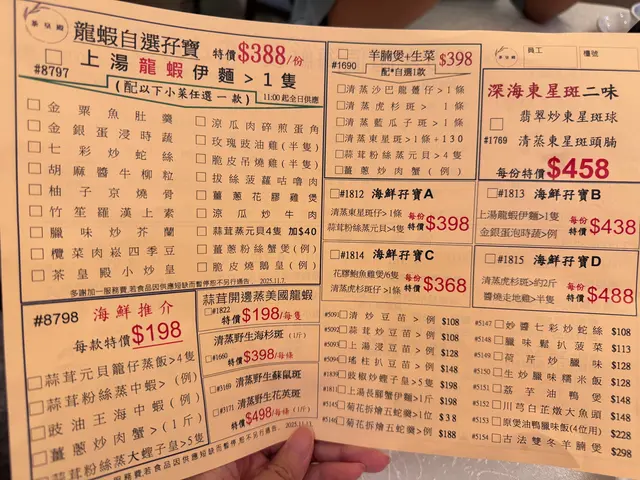 茶皇殿
龍蝦自選孖寶 特價$388/份
#8797 上湯龍蝦伊麵>1隻
(配以下小菜任選一款) 11:00起全日供應
金粟魚肚羹
金銀蛋浸時蔬
七彩炒蛇絲
胡麻醬牛柳粒
柚子京燒骨
竹笙羅漢上素
臘味炒芥蘭
欖菜肉崧四季豆
茶皇殿小炒皇
涼瓜肉碎煎蛋角
玫瑰豉油雞(半隻)
脆皮吊燒雞(半隻)
拔絲菠蘿咕嚕肉
薑蔥花膠雞煲
涼瓜炒牛肉
蒜茸蒸元貝4隻 加$40
薑蔥粉絲蟹煲(例)
脆皮燒鵝皇(例)
多謝加一服務費.若食品因供應短缺而暫停.恕不另行通告. 2025.11.7.
#1690 羊腩煲+生菜 $398
配*自選1款
清蒸沙巴龍躉仔>1條
清蒸虎杉斑>1條
清蒸藍瓜子斑>1條
清蒸東星斑>1條+130
蒜茸粉絲蒸元貝>4隻
薑蔥炒肉蟹(例)
茶皇殿
員工
樓號
深海東星斑二味
翡翠炒東星斑球
#1769 清蒸東星斑頭腩
每份特價$458
#1812 海鮮孖寶A
清蒸東星斑仔>1條
蒜茸粉絲蒸元貝>4隻
每份特價$398
#1813 海鮮孖寶B
上湯龍蝦伊麵>1隻
金銀蛋泡時蔬>例
每份特價$438
#1814 海鮮孖寶C
花膠鮑魚雞煲/6隻
清蒸虎杉斑仔>1條
每份特價$368
#1815 海鮮孖寶D
清蒸虎杉斑>約2斤
醬燒走地雞>半隻
每份特價$488
#8798 海鮮推介
每款特價$198
蒜茸元貝龍仔蒸飯>4隻
蒜茸粉絲蒸中蝦>(例)
豉油王海中蝦(例)
薑蔥炒肉蟹>(1斤)
蒜茸粉絲蒸大蟶子皇>5隻
蒜茸開邊蒸美國龍蝦
#1822 特價$198/每隻
清蒸野生海杉斑(1斤)
#1660 特價$398/每條
#3169 清蒸野生蘇鼠斑
#3171 清蒸野生花英斑
特價$498/每條(1斤)
#5091 清炒豆苗>例 $108
#5092 蒜茸炒豆苗>例 $108
#5093 上湯浸豆苗>例 $108
#5094 瑤柱扒豆苗>例 $148
#1839 豉椒炒蟶子皇>5隻 $198
#1811 上湯長腳蟹伊麵>1斤 $198
#5145 菊花拆燴五蛇羹>1位
#5146 菊花拆燴五蛇羹>例 $188
#5147 炒醬七彩炒蛇絲 $108
#5148 臘味鬆扒菠菜 $113
#5149 荷芹炒臘味 $128
#5150 生炒臘味糯米飯 $128
#5151 荔芋油鴨煲 $148
#5152 川芎白芷燉大魚頭 $148
#5153 原煲油鴨臘味飯(4位用) $228
#5154 古法雙冬羊腩煲 $298
加一服務費.若食品因供應短缺而暫停.恕不另行通告. 2025.11.7.